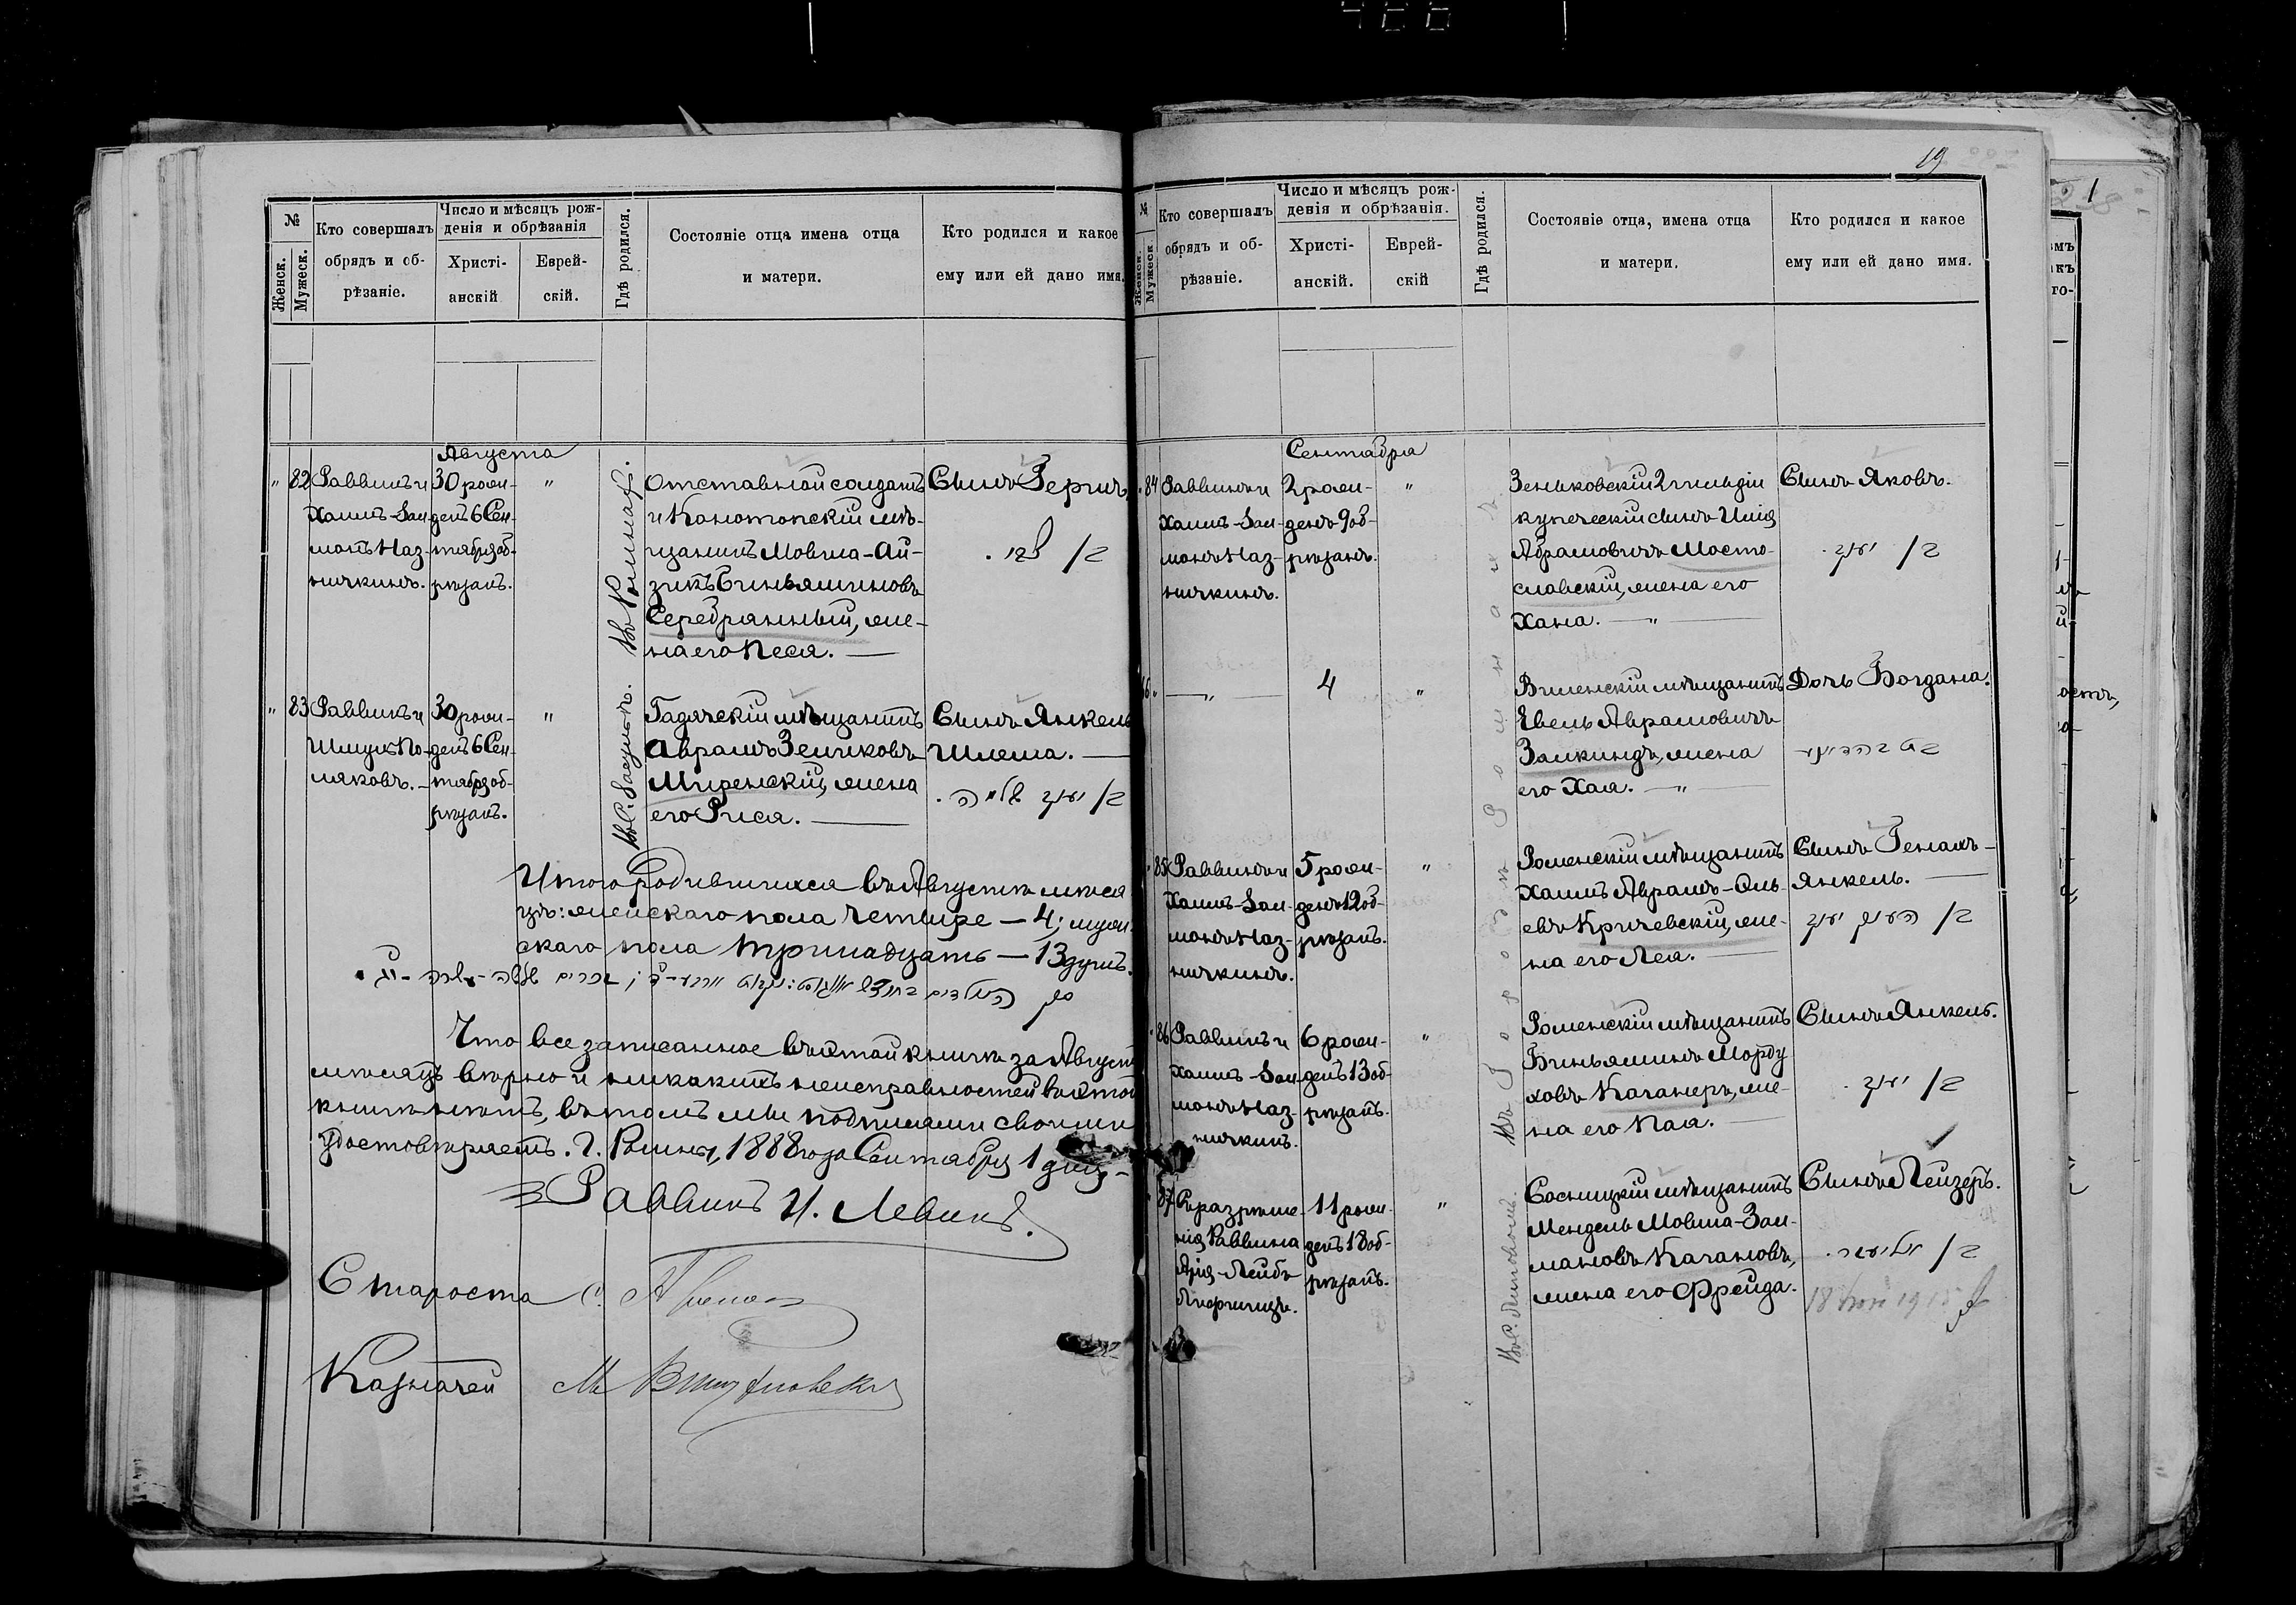 19
№
Женск.
Мужеск.
Кто совершалъ
обрядъ и об-
рѣзаніе.
Число и мѣсяцъ рож-
денія и обрѣзанія
Христі-
анскій
Еврей-
скій.
Гдѣ родился.
Состояніе отца имена отца
и матери.
Кто родился и какое
ему или ей дано имя.
Августа
" 82
Раввинъ и
Хаимъ-Зал-
монъ Наз-
30 рож-
денъ 6 Сен-
тября об-
рѣзанъ.
"
Въ Ромнахъ.
Отставной солдатъ
и Конотопскій мѣ-
щанинъ Мовша-Ай-
зикъ Биньяминовъ
Серебрянный, же-
на его Песя.
Сынъ Герцъ
" 83
Раввинъ и
Шмуль По-
ляковъ.
30 рож-
денъ 6 Сен-
тября об-
рѣзанъ.
"
Гадячскій мѣщанинъ
Авраамъ Зеликовъ
Миренскій, жена
его Риса.
Сынъ Янкель
Шлема.
ז/ יעקב שלמה.
Итого родившихся въ Августѣ мѣся
цѣ: женскаго пола четыре — 4; муж
скаго пола тринадцать — 13 душъ.
Что все записанное въ этой книгѣ за Августъ
мѣсяцъ вѣрно и никакихъ неисправностей въ этой
книгѣ нѣтъ, въ томъ мы подписями своими
удостовѣряемъ. Г. Ромны, 1888 года Сентября 1 дня
Раввинъ И. Левинъ.
Староста
Казначей М
№
Женск.
Мужеск
Кто совершалъ
обрядъ и об-
рѣзаніе.
Число и мѣсяцъ рож-
денія и обрѣзанія.
Христі-
анскій.
Еврей-
скій
Гдѣ родился.
Состояніе отца, имена отца
и матери.
Кто родился и какое
ему или ей дано имя.
Сентября
84
Раввинъ и
Хаимъ-Зал-
монъ Наз-
2 рож-
денъ 9 об-
рѣзанъ.
"
Въ Городѣ Ромнахъ
Зеньковскій 2 гильдіи
купеческій сынъ Илія
Абрамовичъ Мосто-
славскій, жена его
Хана. — " —
Сынъ Яковъ.
ז/ יעקב.
— " —
4
"
Виленскій мѣщанинъ
Евель Авраамовичъ
Залкиндъ, жена
его Хая. — " —
Дочь Богдана.
85
Раввинъ и
Хаимъ-Зал-
монъ Наз-
5 рож-
денъ 12 об-
рѣзанъ.
"
Роменскій мѣщанинъ
Хаимъ Авраамъ-Оль-
евъ Кричевскій, же-
на его Лея.
Сынъ Генахъ-
Янкель.
86
Раввинъ и
Хаимъ-Зал-
монъ Наз-
6 рож-
денъ 13 об-
рѣзанъ.
"
Роменскій мѣщанинъ
Биньяминъ Морду
ховъ Качанеръ, же-
на его Пая.
Сынъ Янкель.
ז/ יעקב.
87
Съ разрѣше-
нія Раввина
Арія-Лейбъ
11 рож-
денъ 18 об-
рѣзанъ.
"
Сосницкій мѣщанинъ
Мендель Мовша-Зал-
мановъ Качановъ,
жена его Фрейда.
Сынъ Лейзеръ.
ז/ אליעזר.